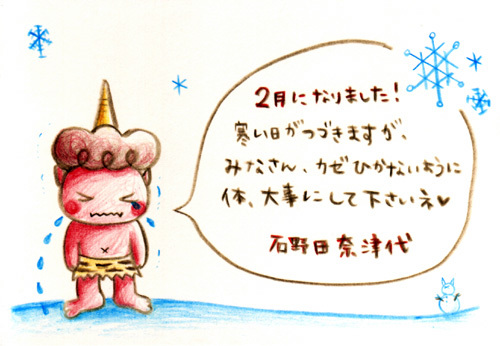 2月になりました!
寒い日がつづきますが、
みなさん、カゼひかないように
体、大事にして下さいネ♥
石野田奈津代